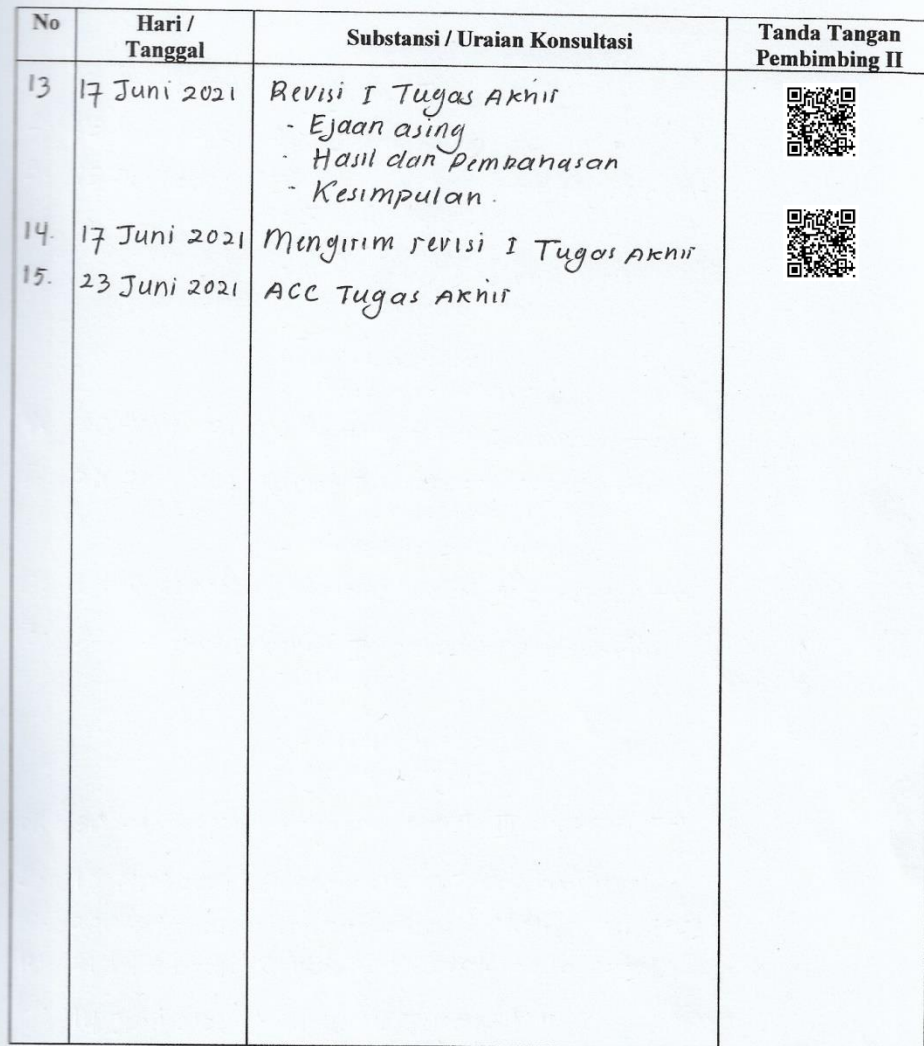 No Hari / Tanggal Substansi / Uraian Konsultasi Tanda Tangan Pembimbing II
13 17 Juni 2021 Revisi I Tugas Akhir
- Ejaan asing
- Hasil dan Pembahasan
- Kesimpulan.
14. 17 Juni 2021 Mengirim revisi I Tugas Akhir
15. 23 Juni 2021 ACC Tugas Akhir